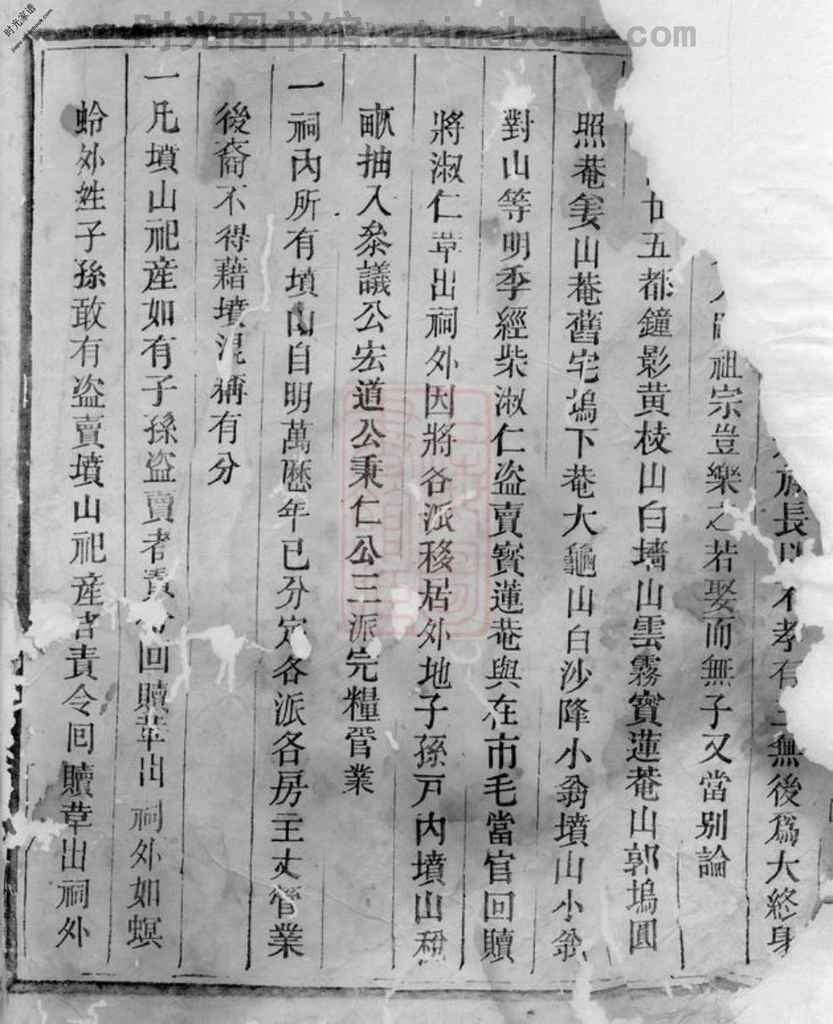 时光图书馆 atimebook.com
时光家谱
族長以不孝有三無後爲大終身
祖宗豈樂之若娶而無子又當別論
廿五都鐘影黃枝山白墻山雲霧寶蓮菴山郭塢圓
照菴山菴舊宅塢下菴大龜山白沙降小翁墳山小翁
對山等明季經柴淑仁盗賣寳蓮菴與在市毛當官回贖
將淑仁革出祠外因將各派移居外地子孫戸内墳山稅
畝抽入叅議公宏道公秉仁公三派完糧管業
一祠内所有墳山自明萬歷年已分定各派各房主丈管業
後裔不得藉墳混稱有分
一凡墳山祀産如有子孫盗賣者責令回贖革出祠外如螟
蛉外姓子孫敢有盗賣墳山祀産者責令回贖革出祠外